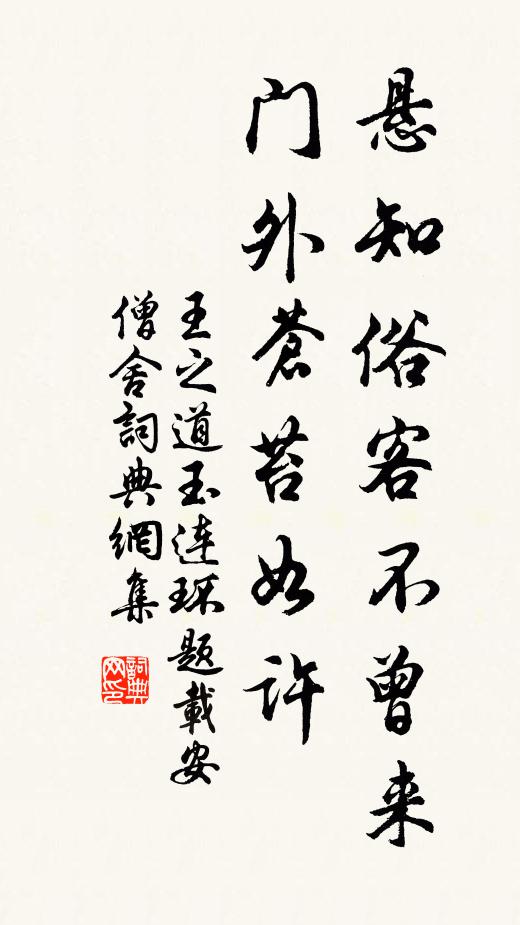 悬知俗客不曾来
门外苍苔如许
王之道玉连环题载安
僧舍詞典網集
詞典网印